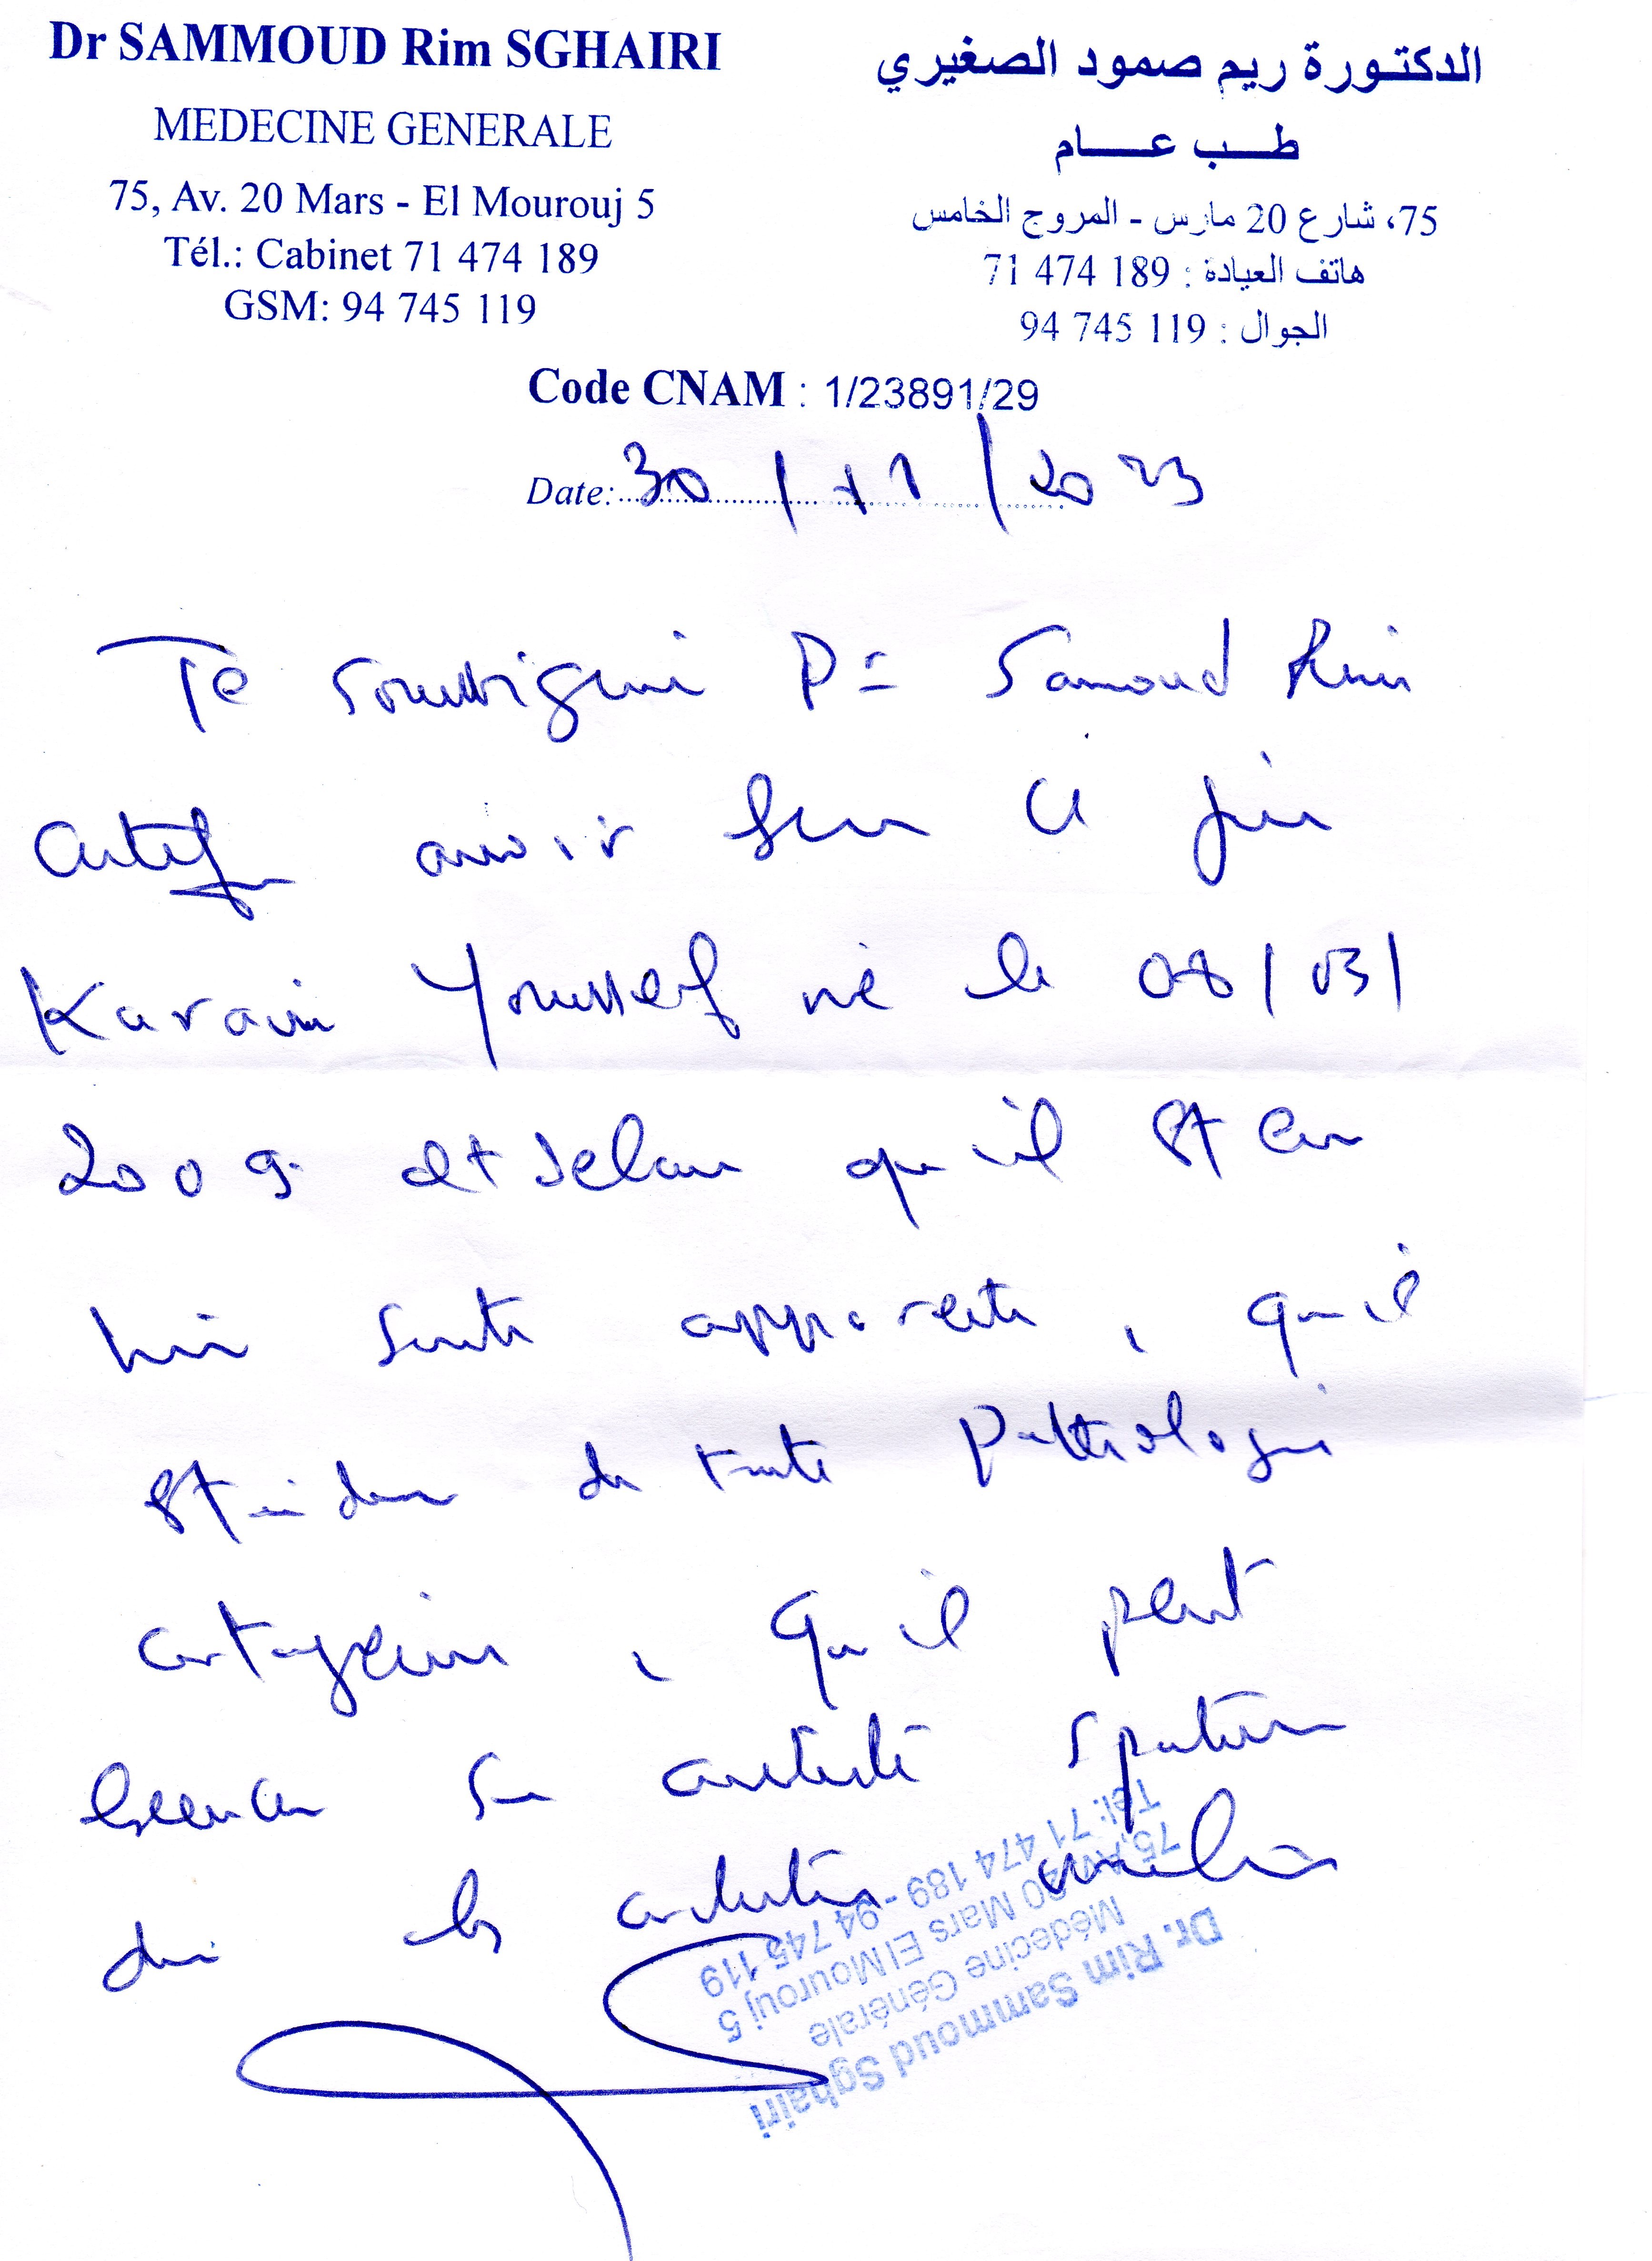 Dr SAMMOUD Rim SGHAIRI
MEDECINE GENERALE
75, Av. 20 Mars - El Mourouj 5
Tél.: Cabinet 71 474 189
GSM: 94 745 119
الدكتورة ريم صمود الصغيري
طب عام
75، شارع 20 مارس - المروج الخامس
هاتف العيادة : 189 474 71
الجوال : 119 745 94
Code CNAM : 1/23891/29
Date: 30/11/2023
Je soussigné Dr Samoud Rim
certifie avoir vu ce jour
Youssef né le 08/03/
2009 et déclare qu'il est en
bonne santé apparente, qu'il
est indemne de toute pathologie
contagieuse, qu'il peut
exercer sa activité sportive
dans les
Dr. Rim Sammoud Sghairi
Médecine Générale
75, Av. 20 Mars El Mourouj 5
Tél: 71 474 189 - 94 745 119